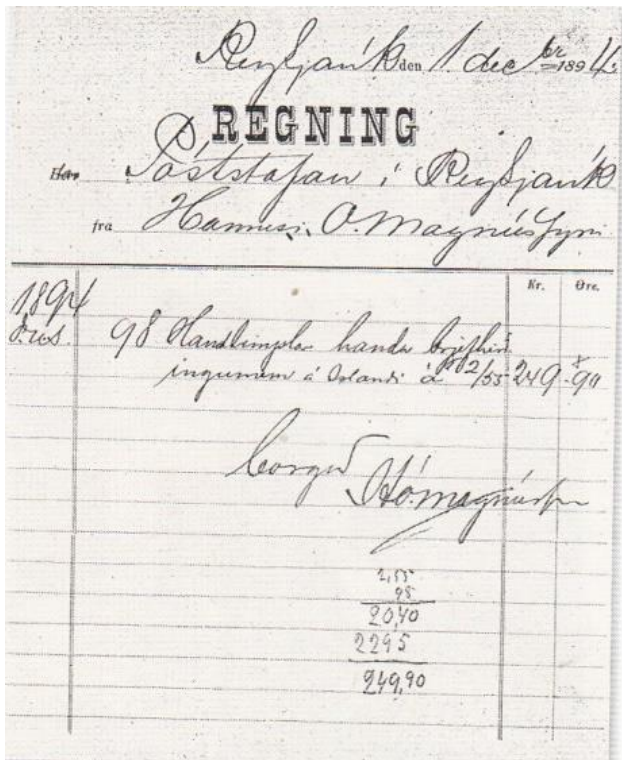 Reykjavík den 1. decbr 1894.
REGNING
Herr Póststofan í Reykjavík
fra Hannesi Ó. Magnússyni
Kr. Øre.
1894
Des. 98 Handstimplar handa brjefhirð
ingunum á Íslandi á 2/55 249 90
borgað
H Ó. Magnússon
2,55
98
20,40
2295
249,90